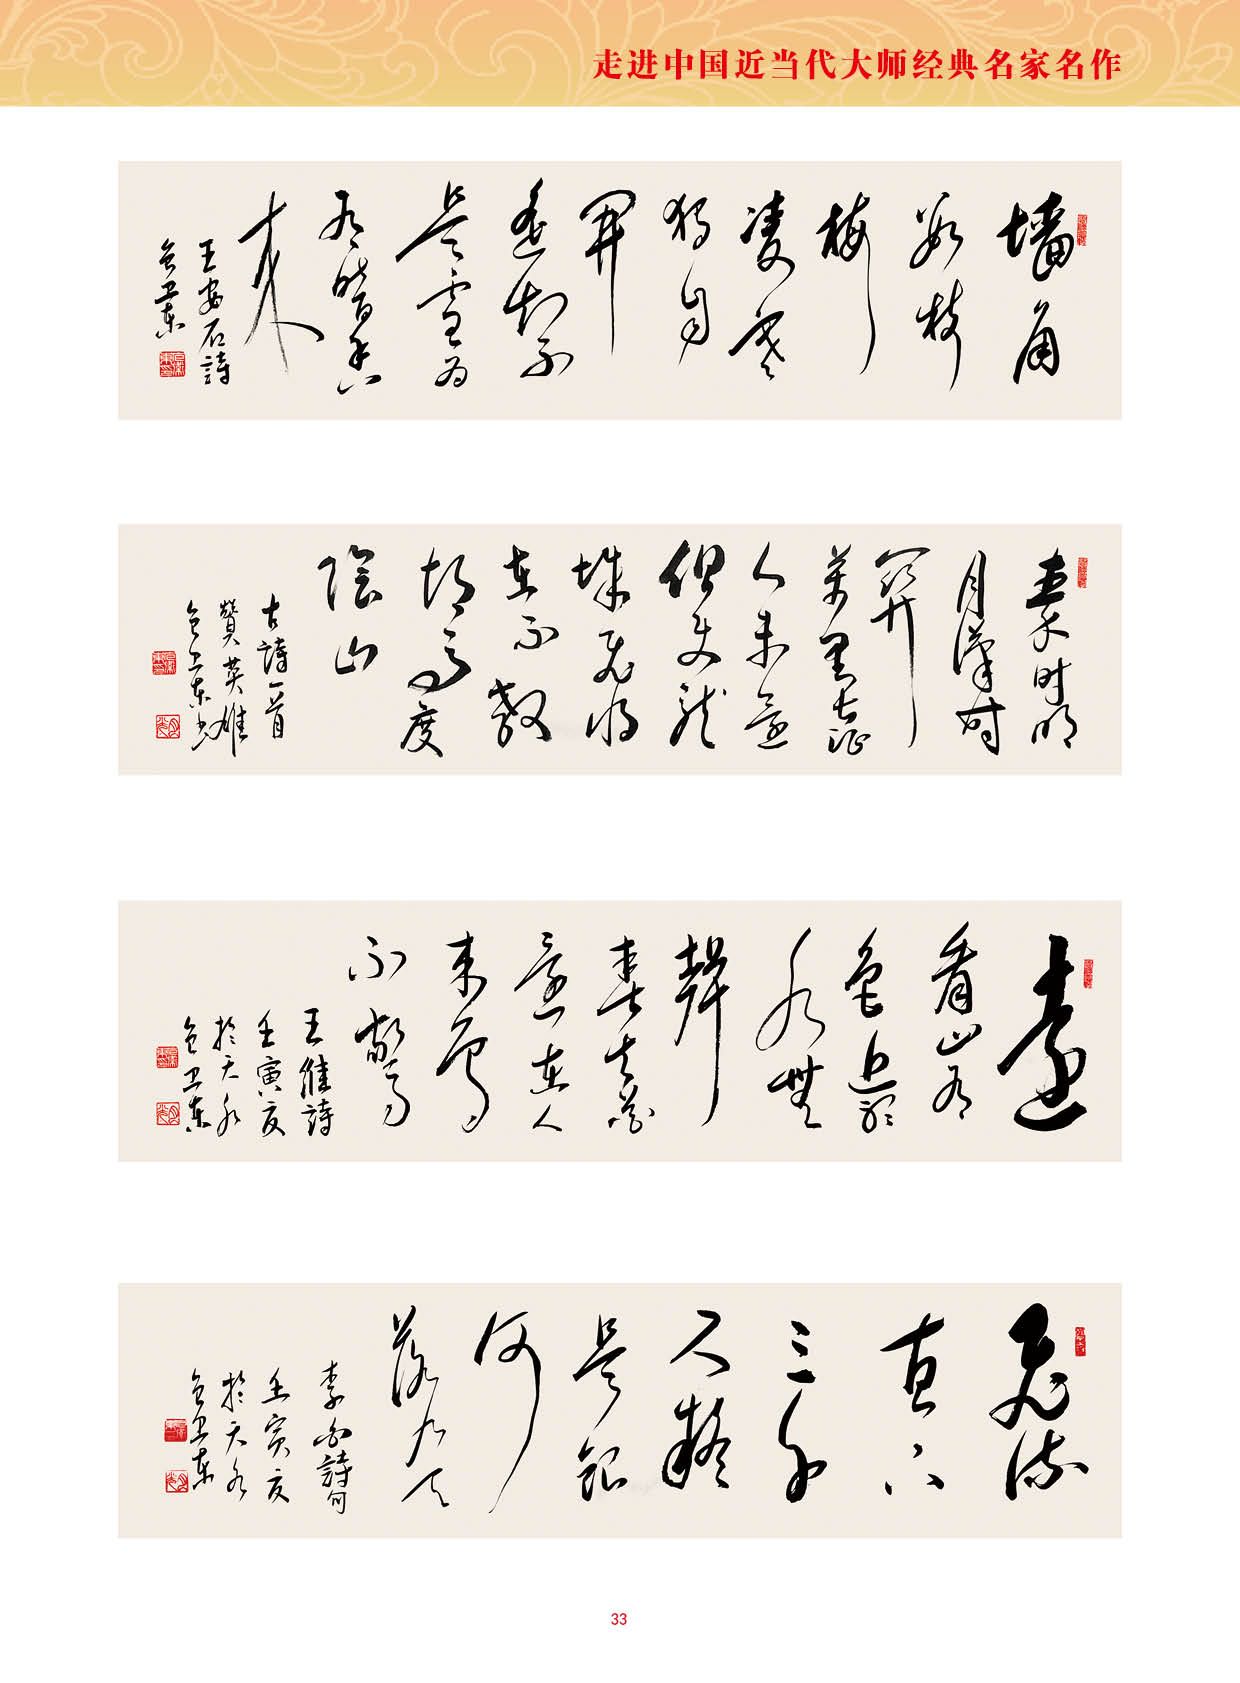 走进中国近当代大师经典名家名作
墙角
数枝
梅
凌寒
独自
開
遥知不
是雪为
有暗香
来
王安石詩
包卫东
秦时明
月漢时
関
萬里长征
人未還
但使龍
城飞将
在不教
胡马度
陰山
古詩一首
贊英雄
包卫东书
遠
看山有
色近聽
水無
聲
春去花
還在人
来鳥
不驚
王維詩
壬寅夏
於天水
包卫东
飞流
直下
三千
尺疑
是銀
河
落九天
李白詩句
壬寅夏
於天水
包卫东
33